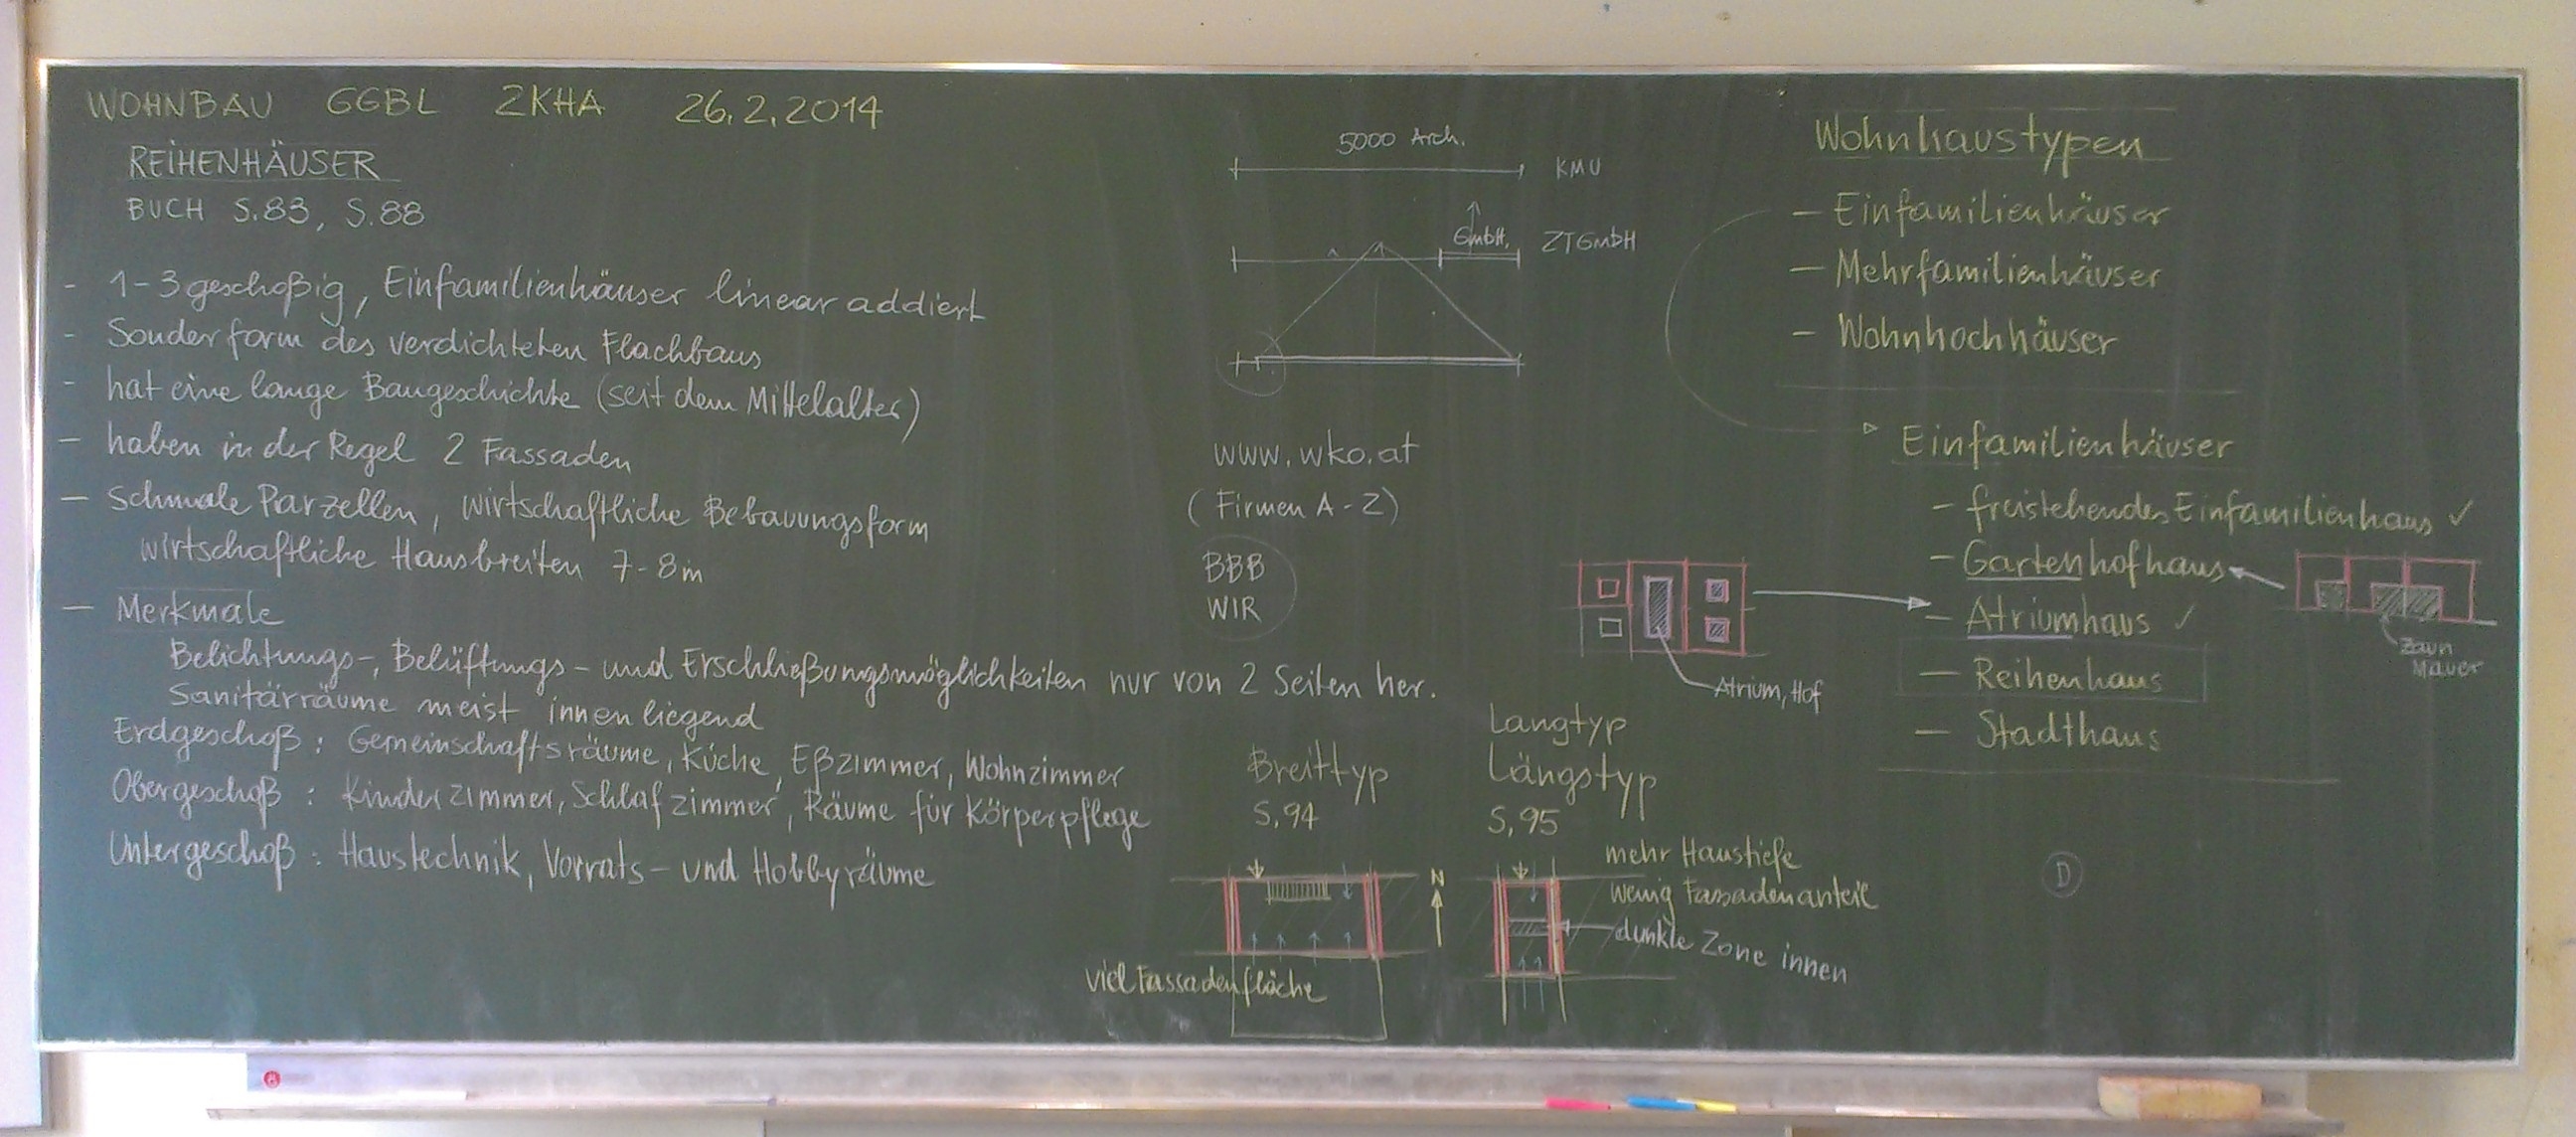 WOHNBAU GGBL 2KHA 26.2.2014
REIHENHÄUSER
BUCH S.83, S.88
- 1-3geschoßig, Einfamilienhäuser linear addiert
- Sonderform des verdichteten Flachbaus
- hat eine lange Baugeschichte (seit dem Mittelalter)
- haben in der Regel 2 Fassaden
- Schmale Parzellen, wirtschaftliche Bebauungsform
wirtschaftliche Hausbreiten 7-8m
- Merkmale
Belichtungs-, Belüftungs- und Erschließungsmöglichkeiten nur von 2 Seiten her.
Sanitärräume meist innenliegend
Erdgeschoß: Gemeinschaftsräume, Küche, Eßzimmer, Wohnzimmer
Obergeschoß: Kinderzimmer, Schlafzimmer, Räume für Körperpflege
Untergeschoß: Haustechnik, Vorrats- und Hobbyräume
5000 Arch.
KMU
GmbH.
ZTGmbH
www.wko.at
(Firmen A-Z)
BBB
WIR
Breittyp
S.94
viel Fassadenfläche
N
Langtyp
Längstyp
S.95
mehr Haustiefe
wenig Fassadenanteil
dunkle Zone innen
Atrium, Hof
Wohnhaustypen
- Einfamilienhäuser
- Mehrfamilienhäuser
- Wohnhochhäuser
Einfamilienhäuser
- freistehendes Einfamilienhaus ✓
- Gartenhofhaus
- Atriumhaus ✓
- Reihenhaus
- Stadthaus
Zaun
Mauer
D